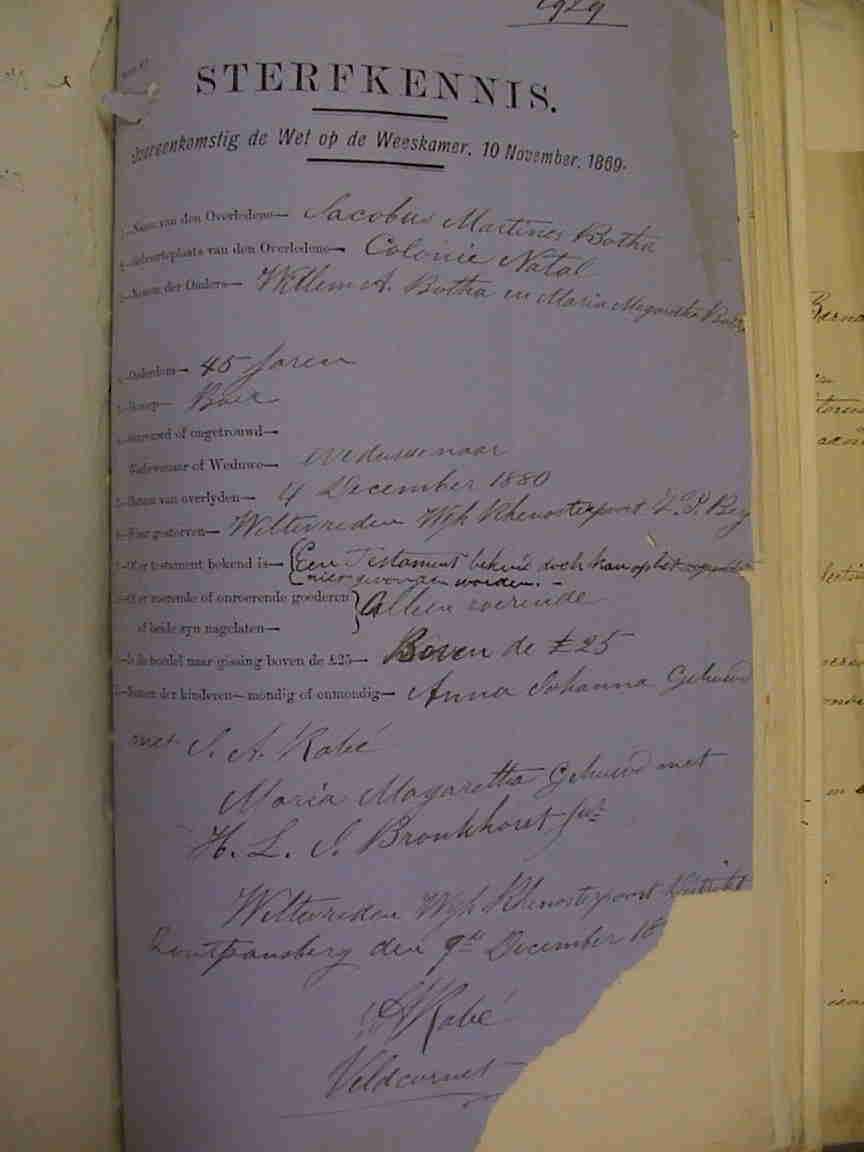 1929
STERFKENNIS.
Overeenkomstig de Wet op de Weeskamer, 10 November, 1869.
1—Naam van den Overledene— Jacobus Martines Botha
2—Geboorteplaats van den Overledene— Colonie Natal
3—Namen der Ouders— Willem A. Botha en Maria Magaretha Botha
4—Ouderdom— 45 Jaren
5—Beroep— Boer
6—Getrouwd of ongetrouwd—
Weduwenaar of Weduwe— Weduwenaar
7—Datum van overlyden— 4 December 1880
8—Waar gestorven— Weltevreden Wyk Rhenosterpoort Z.P. Berg
9—Of er testament bekend is— Een Testament bekend doch kan op het
niet gevonden worden. —
10—Of er roerende of onroerende goederen Alleen roerende
of beide zyn nagelaten—
11—Is de boedel naar gissing boven de £25— Boven de £25
12—Namen der kinderen—mondig of onmondig— Anna Johanna Gehuwd
met S. A. Rabé
Maria Magaretha Gehuwd met
H. L. J. Bronkhorst
Weltevreden Wyk Rhenosterpoort District
Zoutpansberg den 9de December 18
Rabé
Veldcornet